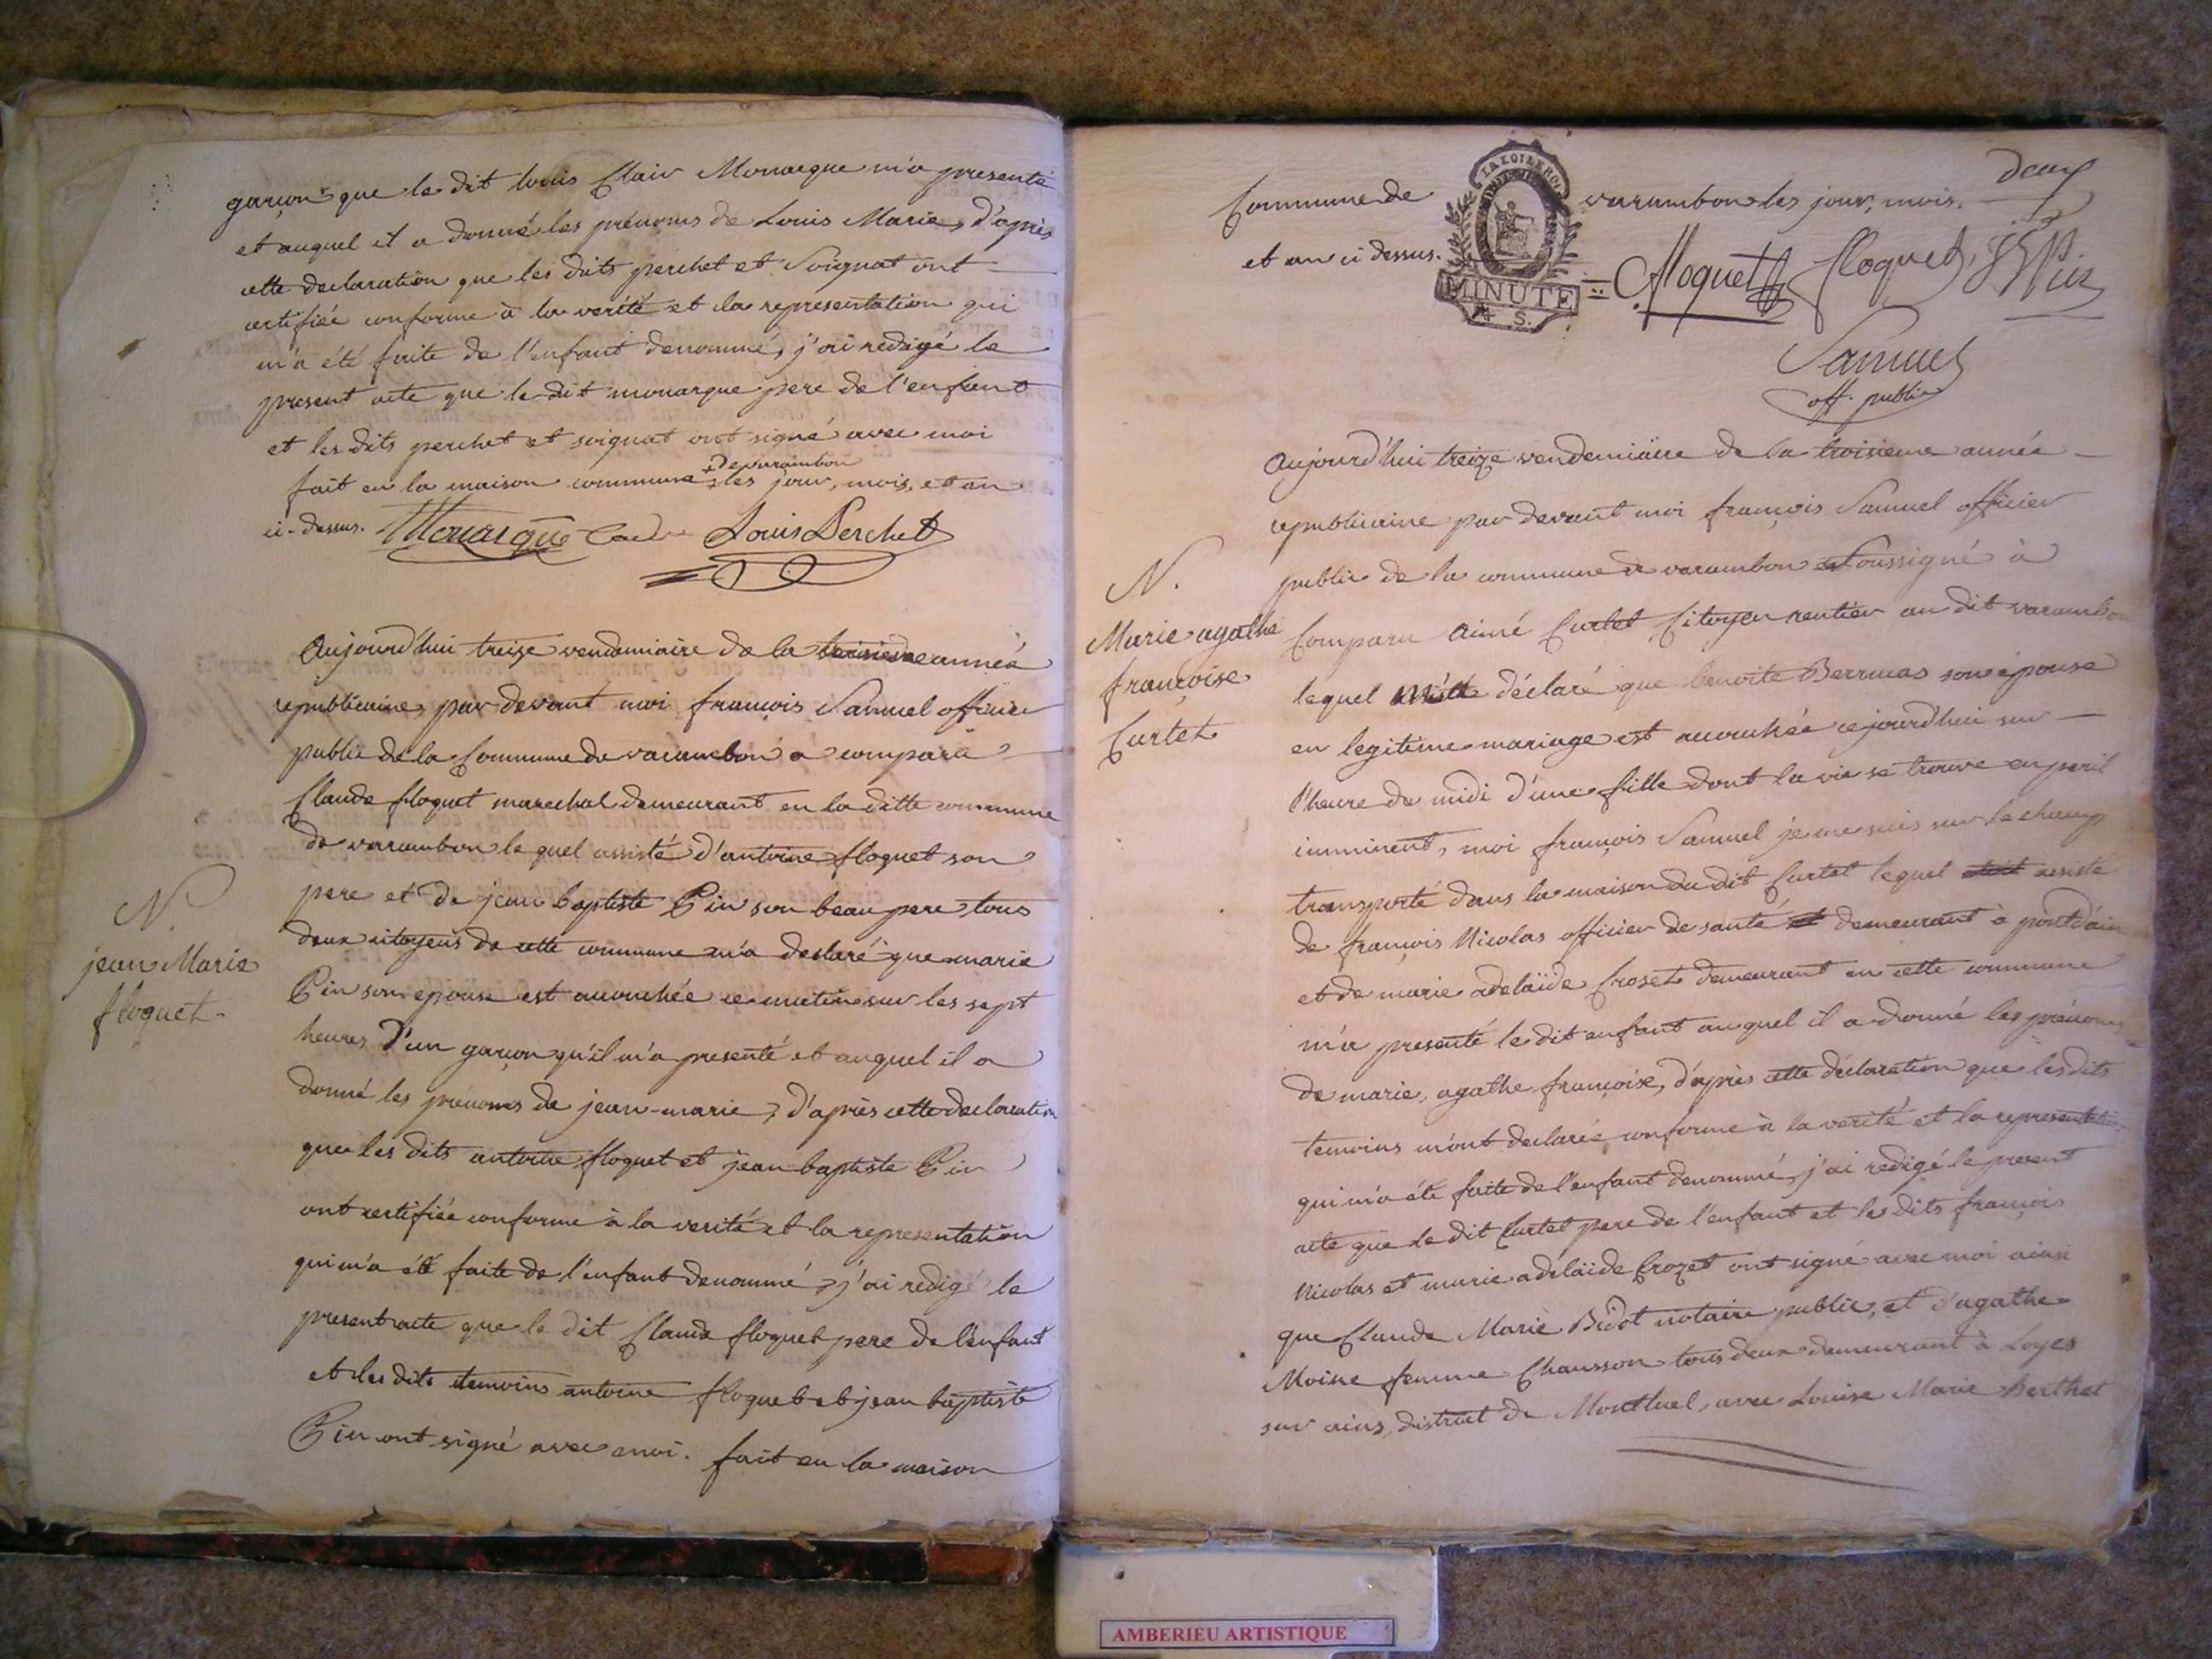 garçon que le dit louis Clair Monarque m'a presenté
et auquel il a donné les prénoms de Louis Marie, d'après
cette declaration que les dits perchet et Soignat ont
certifiée conforme à la verité et la representation qui
m'a été faite de l'enfant denommé, j'ai redigé le
present acte que le dit monarque pere de l'enfant
et les dits perchet et soignat ont signé avec moi
de varambon
fait en la maison commune les jour, mois, et an
ci-dessus. Monarque Louis Perchet
Aujourd'hui treize vendemiaire de la troisieme année
republicaine, par devant moi françois Samuel officier
public de la Commune de varambon a comparu
Claude floquet marechal demeurant en la ditte commune
de varambon le quel assisté d'antoine floquet son
pere et de jean baptiste Pin son beau pere, tous
deux citoyens de cette commune m'a declaré que marie
Pin son epouse est accouchée ce matin sur les sept
heures d'un garçon qu'il m'a presenté et auquel il a
donné les prénoms de jean-marie, d'après cette declaration
que les dits antoine floquet et jean baptiste Pin
ont certifiée conforme à la verité et la representation
qui m'a été faite de l'enfant denommé, j'ai redigé le
present acte que le dit Claude floquet pere de l'enfant
et les dits temoins antoine floquet et jean baptiste
Pin ont signé avec moi. fait en la maison
N.
jean Marie
floquet.
deux
Commune de varambon les jour, mois,
et an ci dessus.
MINUTE
4 S.
floquet floquet, JB Pin
Samuel
off. public
Aujourd'hui treize vendemiaire de la troisieme année
republicaine par devant moi françois Samuel officier
public de la commune de varambon Soussigné à
Comparu Aimé Curtet Citoyen rentier au dit varambon
lequel déclaré que benoite Berruas son épouse
en legitime mariage est accouchée cejourd'hui sur
l'heure de midi d'une fille dont la vie se trouve en peril
imminent, moi françois Samuel je me suis sur le champ
transporté dans la maison du dit Curtet lequel assisté
de françois Nicolas officier de santé demeurant à pontdain
et de marie adelaïde Croset demeurant en cette commune
m'a presenté le dit enfant auquel il a donné les prénoms
de marie, agathe françoise, d'après cette déclaration que les dits
temoins m'ont declarée conforme à la verité et la representation
qui m'a été faite de l'enfant denommé, j'ai redigé le present
acte que le dit Curtet pere de l'enfant et les dits françois
Nicolas et marie adelaïde Crozet ont signé avec moi ainsi
que Claude Marie Bidot notaire public, et d'agathe
Moine femme Chausson tous deux demeurant à Loyes
sur ains, district de Montluel, avec Louise Marie Berthet
N.
Marie agathe
françoise
Curtet
AMBERIEU ARTISTIQUE